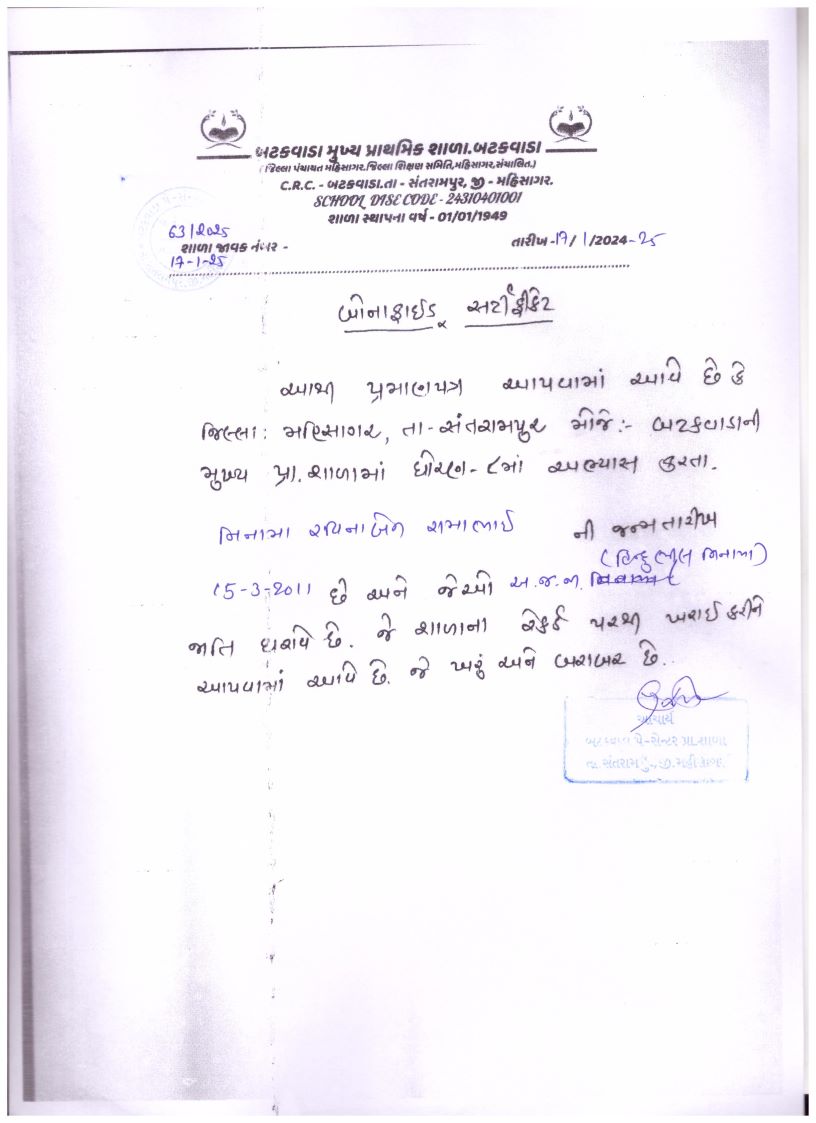 બટકવાડા મુખ્ય પ્રાથમિક શાળા.બટકવાડા
(જિલ્લા પંચાયત મહિસાગર.જિલ્લા શિક્ષણ સમિતિ,મહિસાગર,સંચાલિત.)
C.R.C. - બટકવાડા.તા - સંતરામપુર, જી - મહિસાગર.
SCHOOL DISE CODE - 24310401001
શાળા સ્થાપના વર્ષ - 01/01/1949
63/2025
શાળા જાવક નંબર -
17-1-25
તારીખ -17/1/2024-25
બોનાફાઈડ સર્ટીફીકેટ
આથી પ્રમાણપત્ર આપવામાં આવે છે કે
જિલ્લા: મહિસાગર, તા-સંતરામપુર મોજે:- બટકવાડાની
મુખ્ય પ્રા.શાળામાં ધોરણ-૮માં અભ્યાસ કરતા.
નિનામા રવિનાબેન રામાભાઈ ની જન્મતારીખ
(હિન્દુ ભીલ નિનામા)
15-3-2011 છે અને જેઓ અ.જ.જા.
જાતિ ધરાવે છે. જે શાળાના રેકર્ડ પરથી ખરાઈ કરીને
આપવામાં આવે છે. જે ખરું અને બરાબર છે.
આચાર્ય
બટકવાડા પે-સેન્ટર પ્રા.શાળા
તા.સંતરામપુર,જી.મહીસાગર